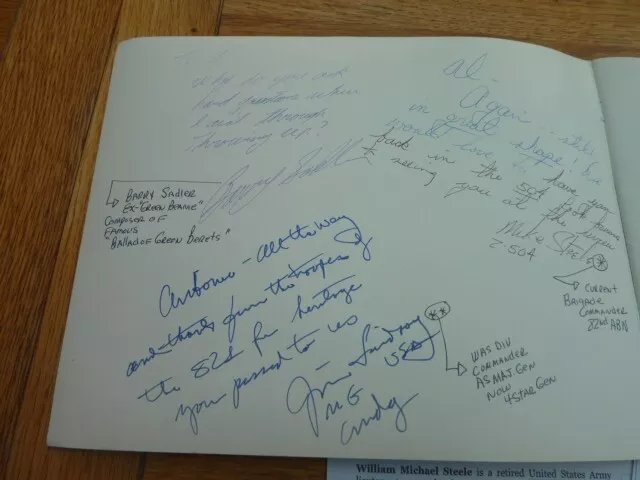 hard questions when
I was through
throwing up?
Barry Sadler
BARRY SADLER
EX-"GREEN BERANIE"
COMPOSER OF
FAMOUS
"BALLAD OF GREEN BERETS"
al -
Again - still
in great shape! We
would love to have you
back in the 504
seeing you at the
Mike Steele
2-504
*
CURRENT
BRIGADE
COMMANDER
82nd ABN
Antonio - All the way
and thanks from the troopers of
the 82d for heritage
you passed to us
Jim Lindsay
USA
MG
Cmdg
**
WAS DIV
COMMANDER
AS MAJ. GEN
NOW
4 STAR GEN
William Michael Steele is a retired United States Army